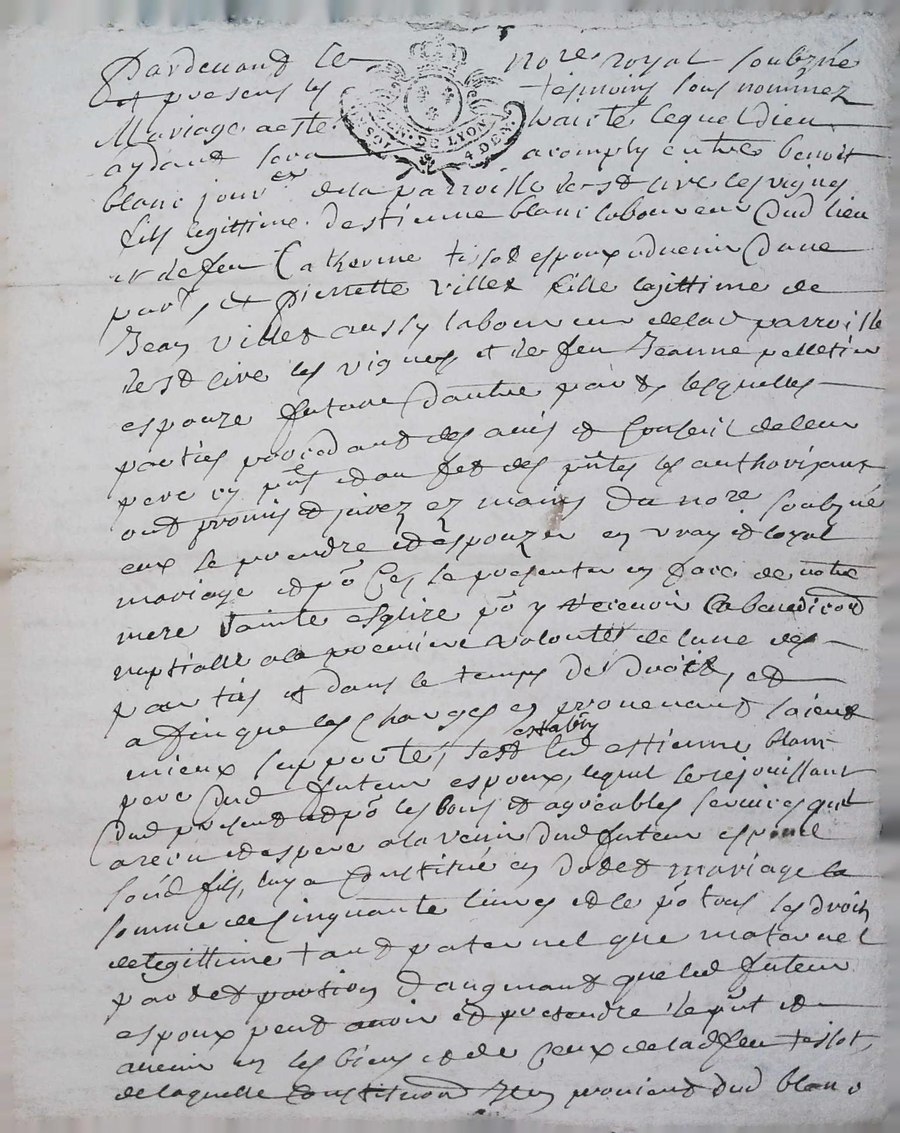 Pardevant le nore royal soubzné
et presens les tesmoins sous nommez
GN. DE LYON
4 DEN.
Mariage a este traicté lequel dieu
aydant sera acomply entre benoit
blanc jour.er de la parroisse de st cire les vignes
fils legittime d'estienne blanc laboureur dud lieu
et de feu Catherine tissot espoux advenir d'une
part, et Pierrette villet fille legittime de
Jean villet aussy laboureur de lad parroisse
de st cire les vignes et de feu Jeanne pelletier
espouze future d'autre part lesquelles
parties procedant des avis et Conseil de leur
pere cy pnt et au fet des pntes les authorisant
ont promis et jurez ez mains du nore soubzné
eux se prendre et espouzer en vray et loyal
mariage et po Ces se presenter en face de nostre
mere sainte esglize po y recevoir la benediction
nuptialle a la premiere volonté de l'une des
parties et dans le temps de droit, et
affin que les charges en provenant soient
mieux suportés, s'est estably led estienne blanc
pere dud futeur espoux, lequel se rejouissant
dud present et po les bons et agreables services qu'il
a receu et espere a l'avenir dud futeur espoux
sond fils, luy a Constitué en dot et mariage la
somme de Cinquante livres et ce po tous les droits
de legittime tant paternel que maternel
part et portion d'augment que led futeur
espoux peut avoir et pretendre le pnt et
avenir en les biens et de Ceux de lad feu tissot,
de laquelle Constitution provient dud blanc